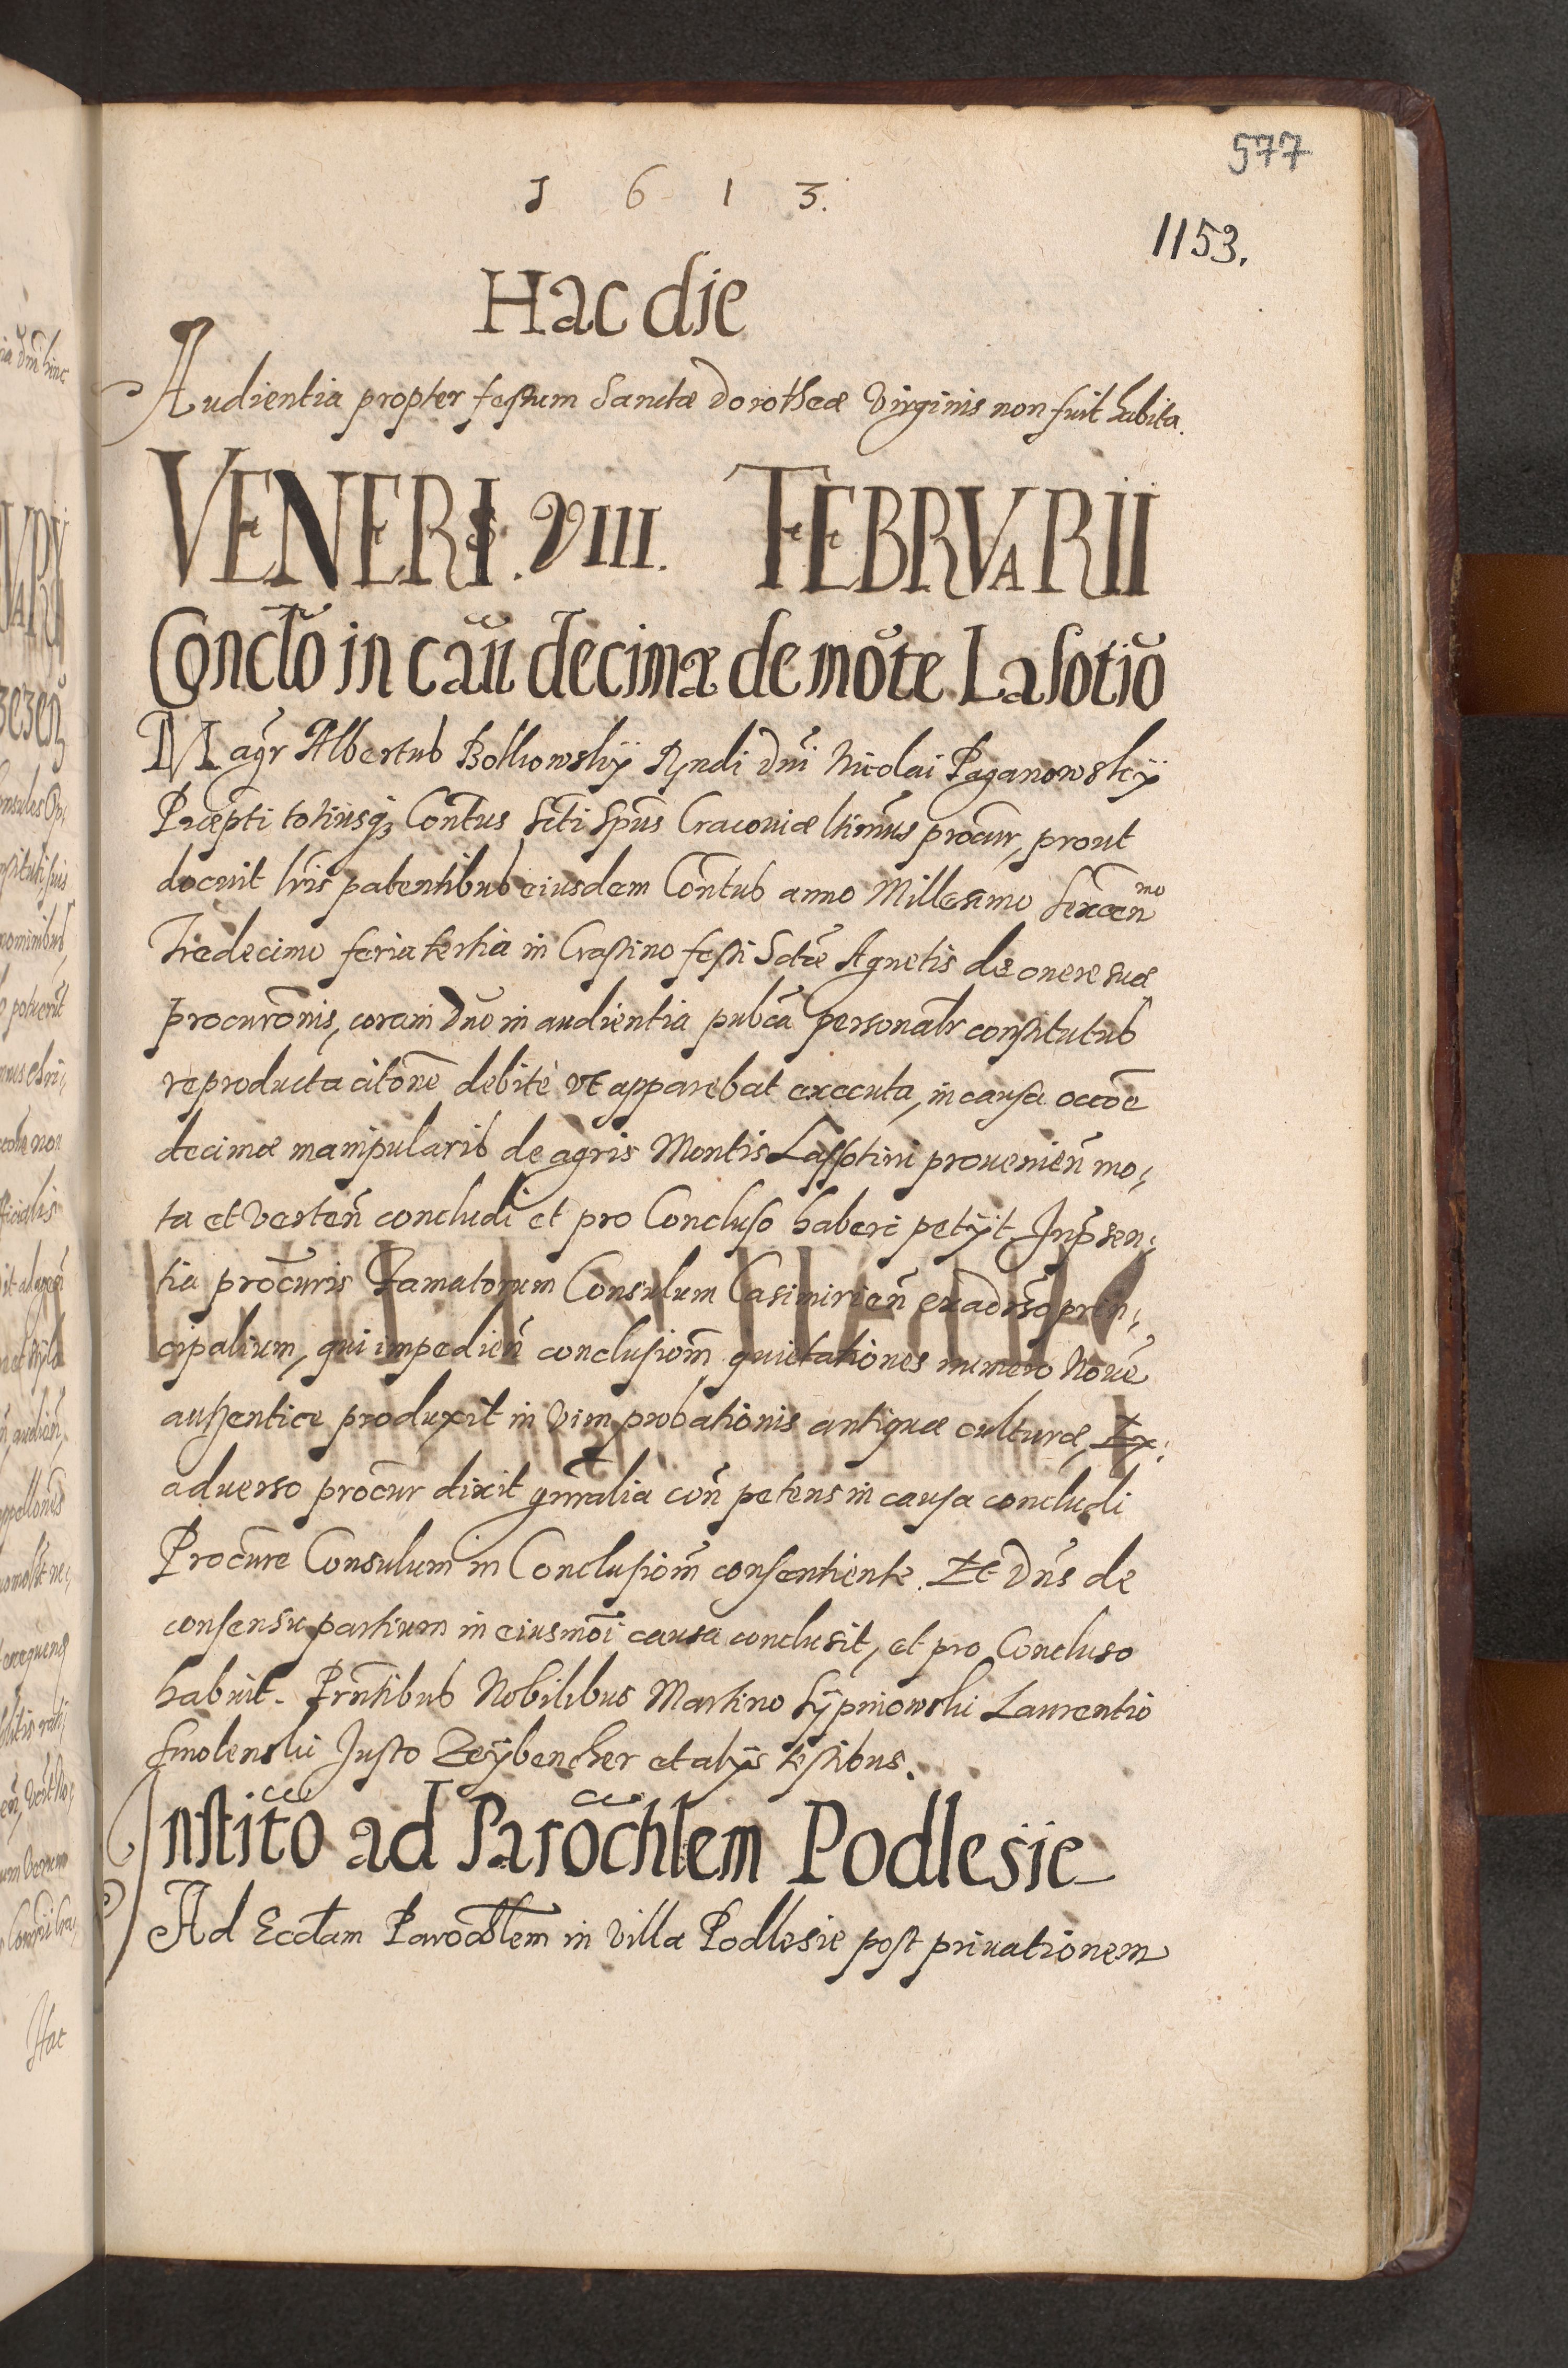 577
1 6 1 3.
1153.
Hac die
Audientia propter festum Sanctæ Dorotheæ Virginis non fuit habita.
VENERIS. VIII. FEBRVARII
Conclõ in cãu decimæ de mõte Lasotiũ
Magr̃ Albertus Bolkowskÿ Rndi Dnĩ Nicolai Paganowskÿ
Præpti totiusq₃ Contus Scti Spũs Cracoviæ ltimũs procũr, prout
docuit lris̃ patentibus eiusdem Contus anno Millesimo Sexcen̄mo
Tredecimo feria tertia in Crastino festi Sctæ Agnetis de onere suæ
procurõnis, coram Dno in audientia pubca personalr constitutus
reproducta citõne debitè vt apparebat executa, in causa occõe
decimæ manipularis de agris Montis Lassotini provenien̄ mo;
ta et verten̄ concludi et pro Concluso haberi petijt. In p̃sen;
tia procũris Famatorum Consulum Casimirien̄ ex adverso prin;
cipalium, qui impedien̄ conclusionem̃ quietationes numero Novẽ
authentice produxit in vim probationis antiquæ culturæ, Ex;
adverso procũr dixit gnralia con̄ petens in causa concludi
Procũre Consulum in Conclusionem̃ consentiente. Et Dñs de
consensu partium in eiusmõi causa conclusit, et pro Concluso
habuit. Prñtibus Nobilibus Martino Sÿpniowski Laurentio
Smolenski Justo Zeÿbencher et alijs testibus.
Institõ ad Parõchlem Podlesie
Ad Eccl̃am Parochlem in villa Podlesie post privationem
Hac